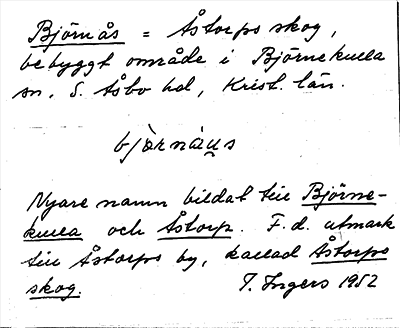 Björnås = Åstorps skog,
bebyggt område i Björnekulla
sn, S. Åsbo hd, Krist. län.
bjò̤rnàu̯s
Nyare namn bildat till Björne-
kulla och Åstorp. F.d. utmark
till Åstorps by, kallad Åstorps
skog. I. Ingers 1952